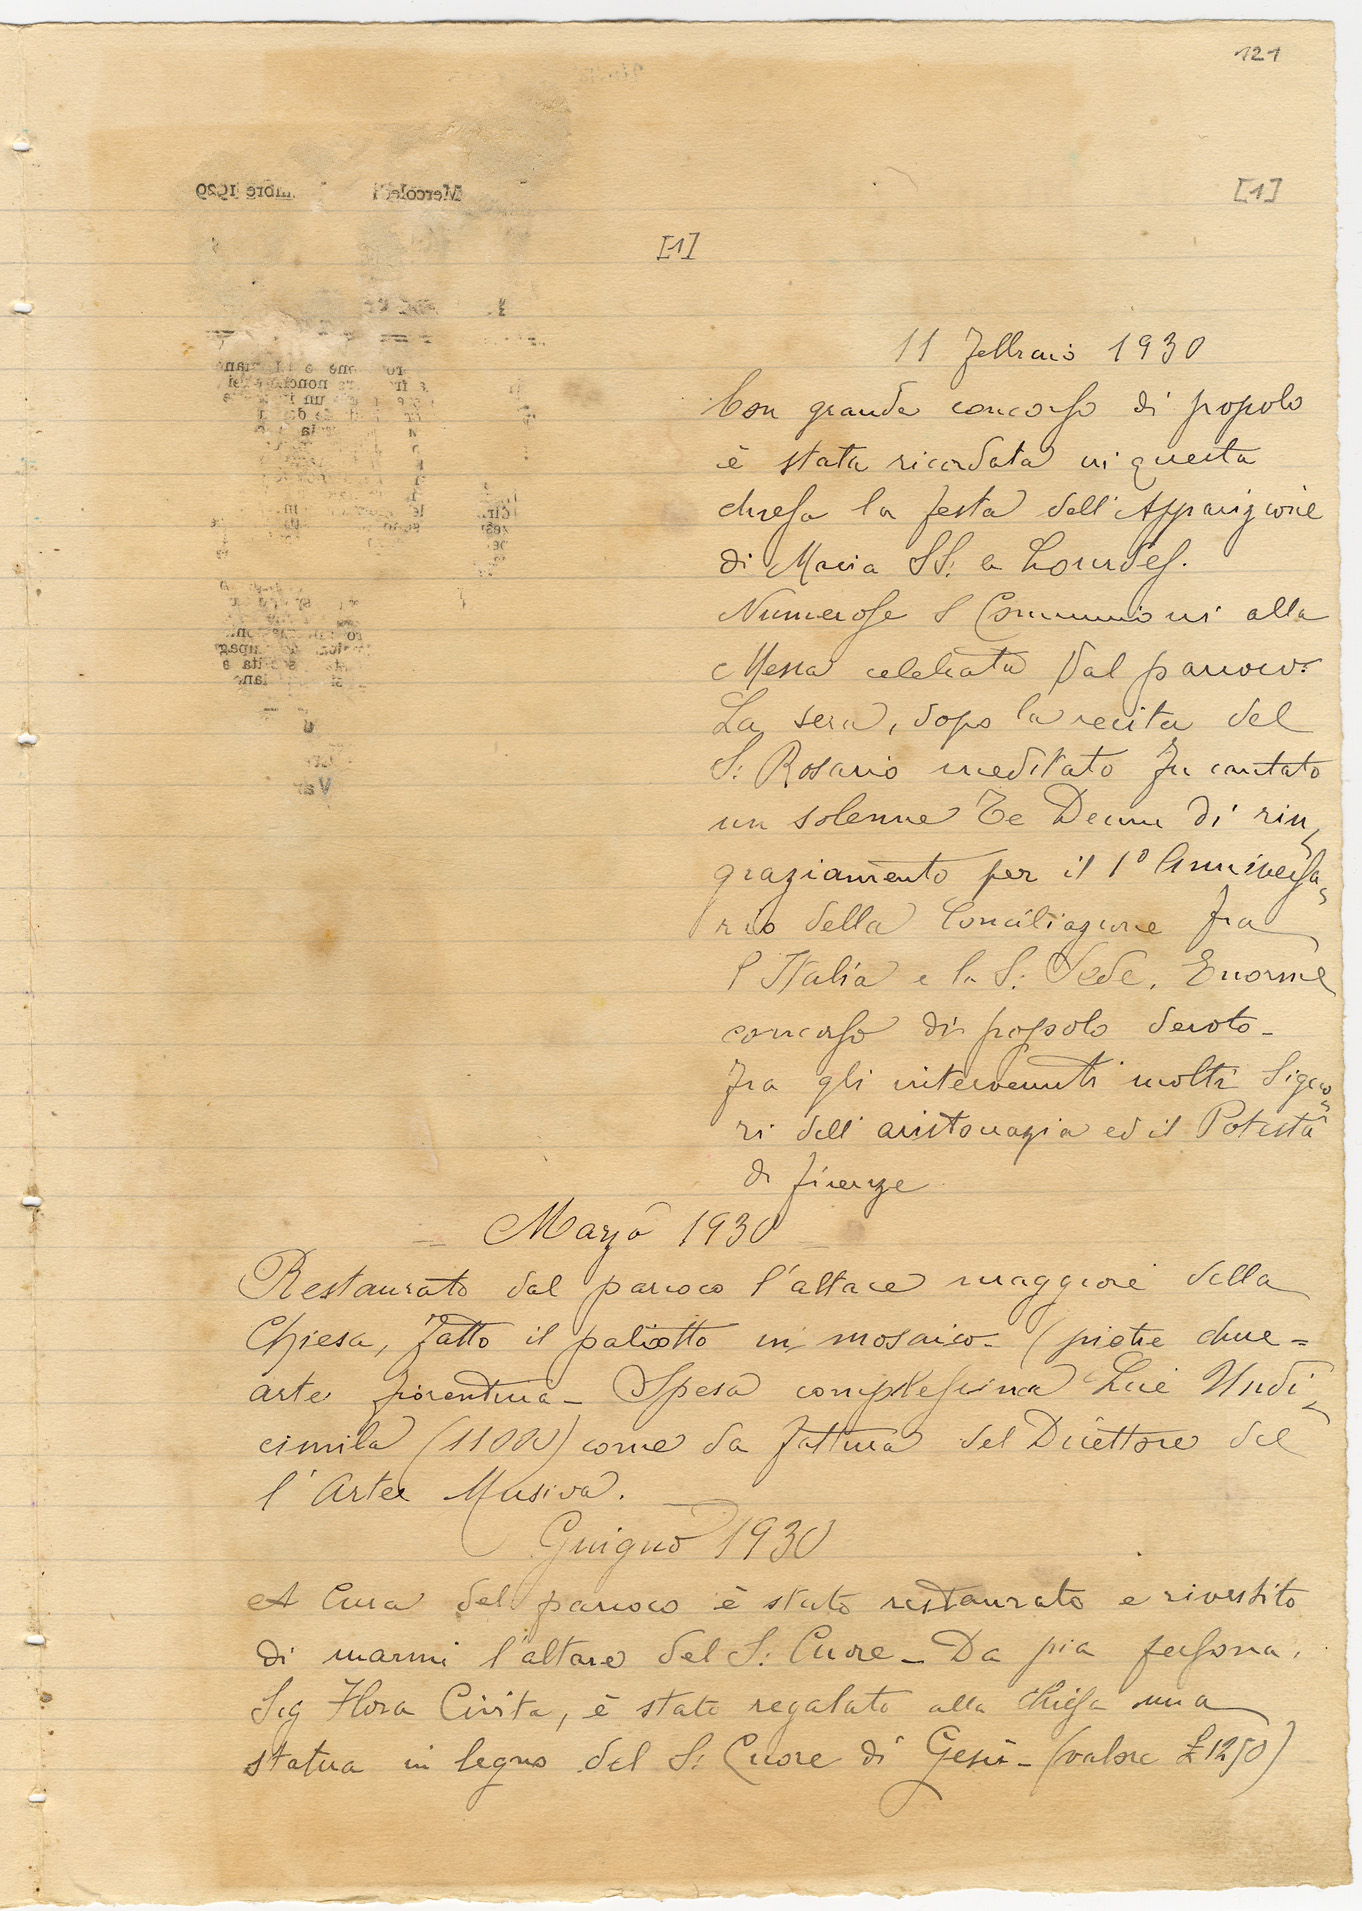 121
[1]
[1]
11 Febbraio 1930
Con grande concorso di popolo
è stata ricordata in questa
chiesa la festa dell'Apparizione
di Maria SS: a Lourdes.
Numerose S Comunioni alla
Messa celebrata dal parroco:
La sera, dopo la recita del
S: Rosario meditato fu cantato
un solenne Te Deum di rin-
graziamento per il 1° Anniversa-
rio della Conciliazione fra
l'Italia e la S: Sede. Enorme
concorso di popolo devoto -
Fra gli intervenuti molti Signo-
ri dell'aristocrazia ed il Potestà
di Firenze
= Marzo 1930 =
Restaurato dal parroco l'altare maggiore della
Chiesa, fatto il paliotto in mosaico - (pietre dure =
arte fiorentina - Spesa complessiva Lire Undi-
cimila (11000) come da fattura del Direttore del
l'Arte Musiva.
Giugno 1930
A cura del parroco è stato restaurato e rivestito
di marmi l'altare del S: Cuore - Da pia persona,
Sig Flora Civita, è stato regalato alla chiesa una
statua in legno del S: Cuore di Gesù - (valore £ 1250)
Mercoledì mbre 1929